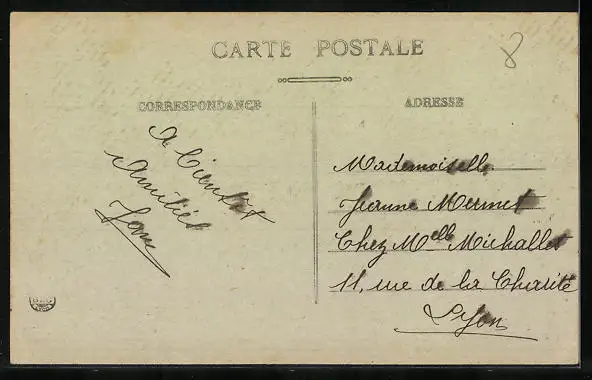 CARTE POSTALE
8
CORRESPONDANCE
ADRESSE
A bientôt
Amitiés
Mademoiselle
Jeanne Mermet
Chez Melle Michallet
11, rue de la Charité
Lyon